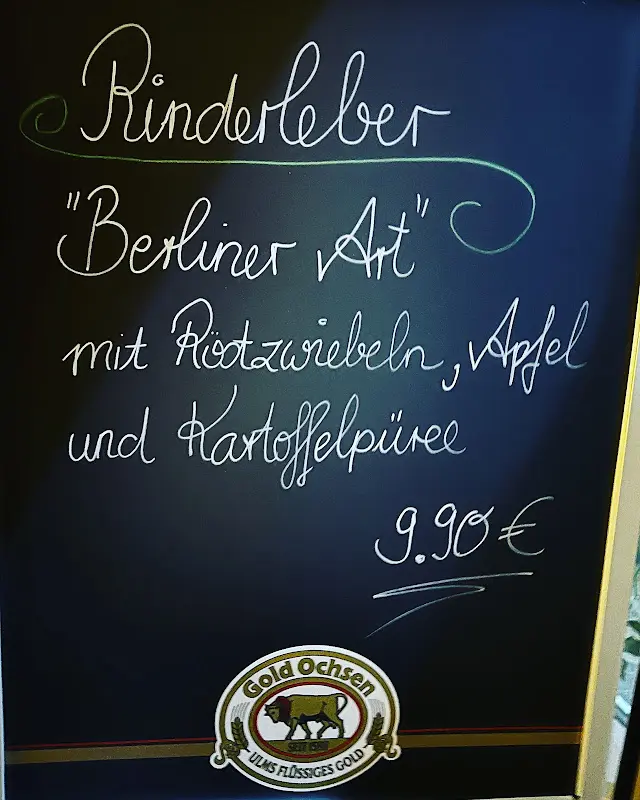 Rinderleber
"Berliner Art"
mit Röstzwiebeln, Apfel
und Kartoffelpüree
9.90 €
Gold Ochsen
ULMS FLÜSSIGES GOLD